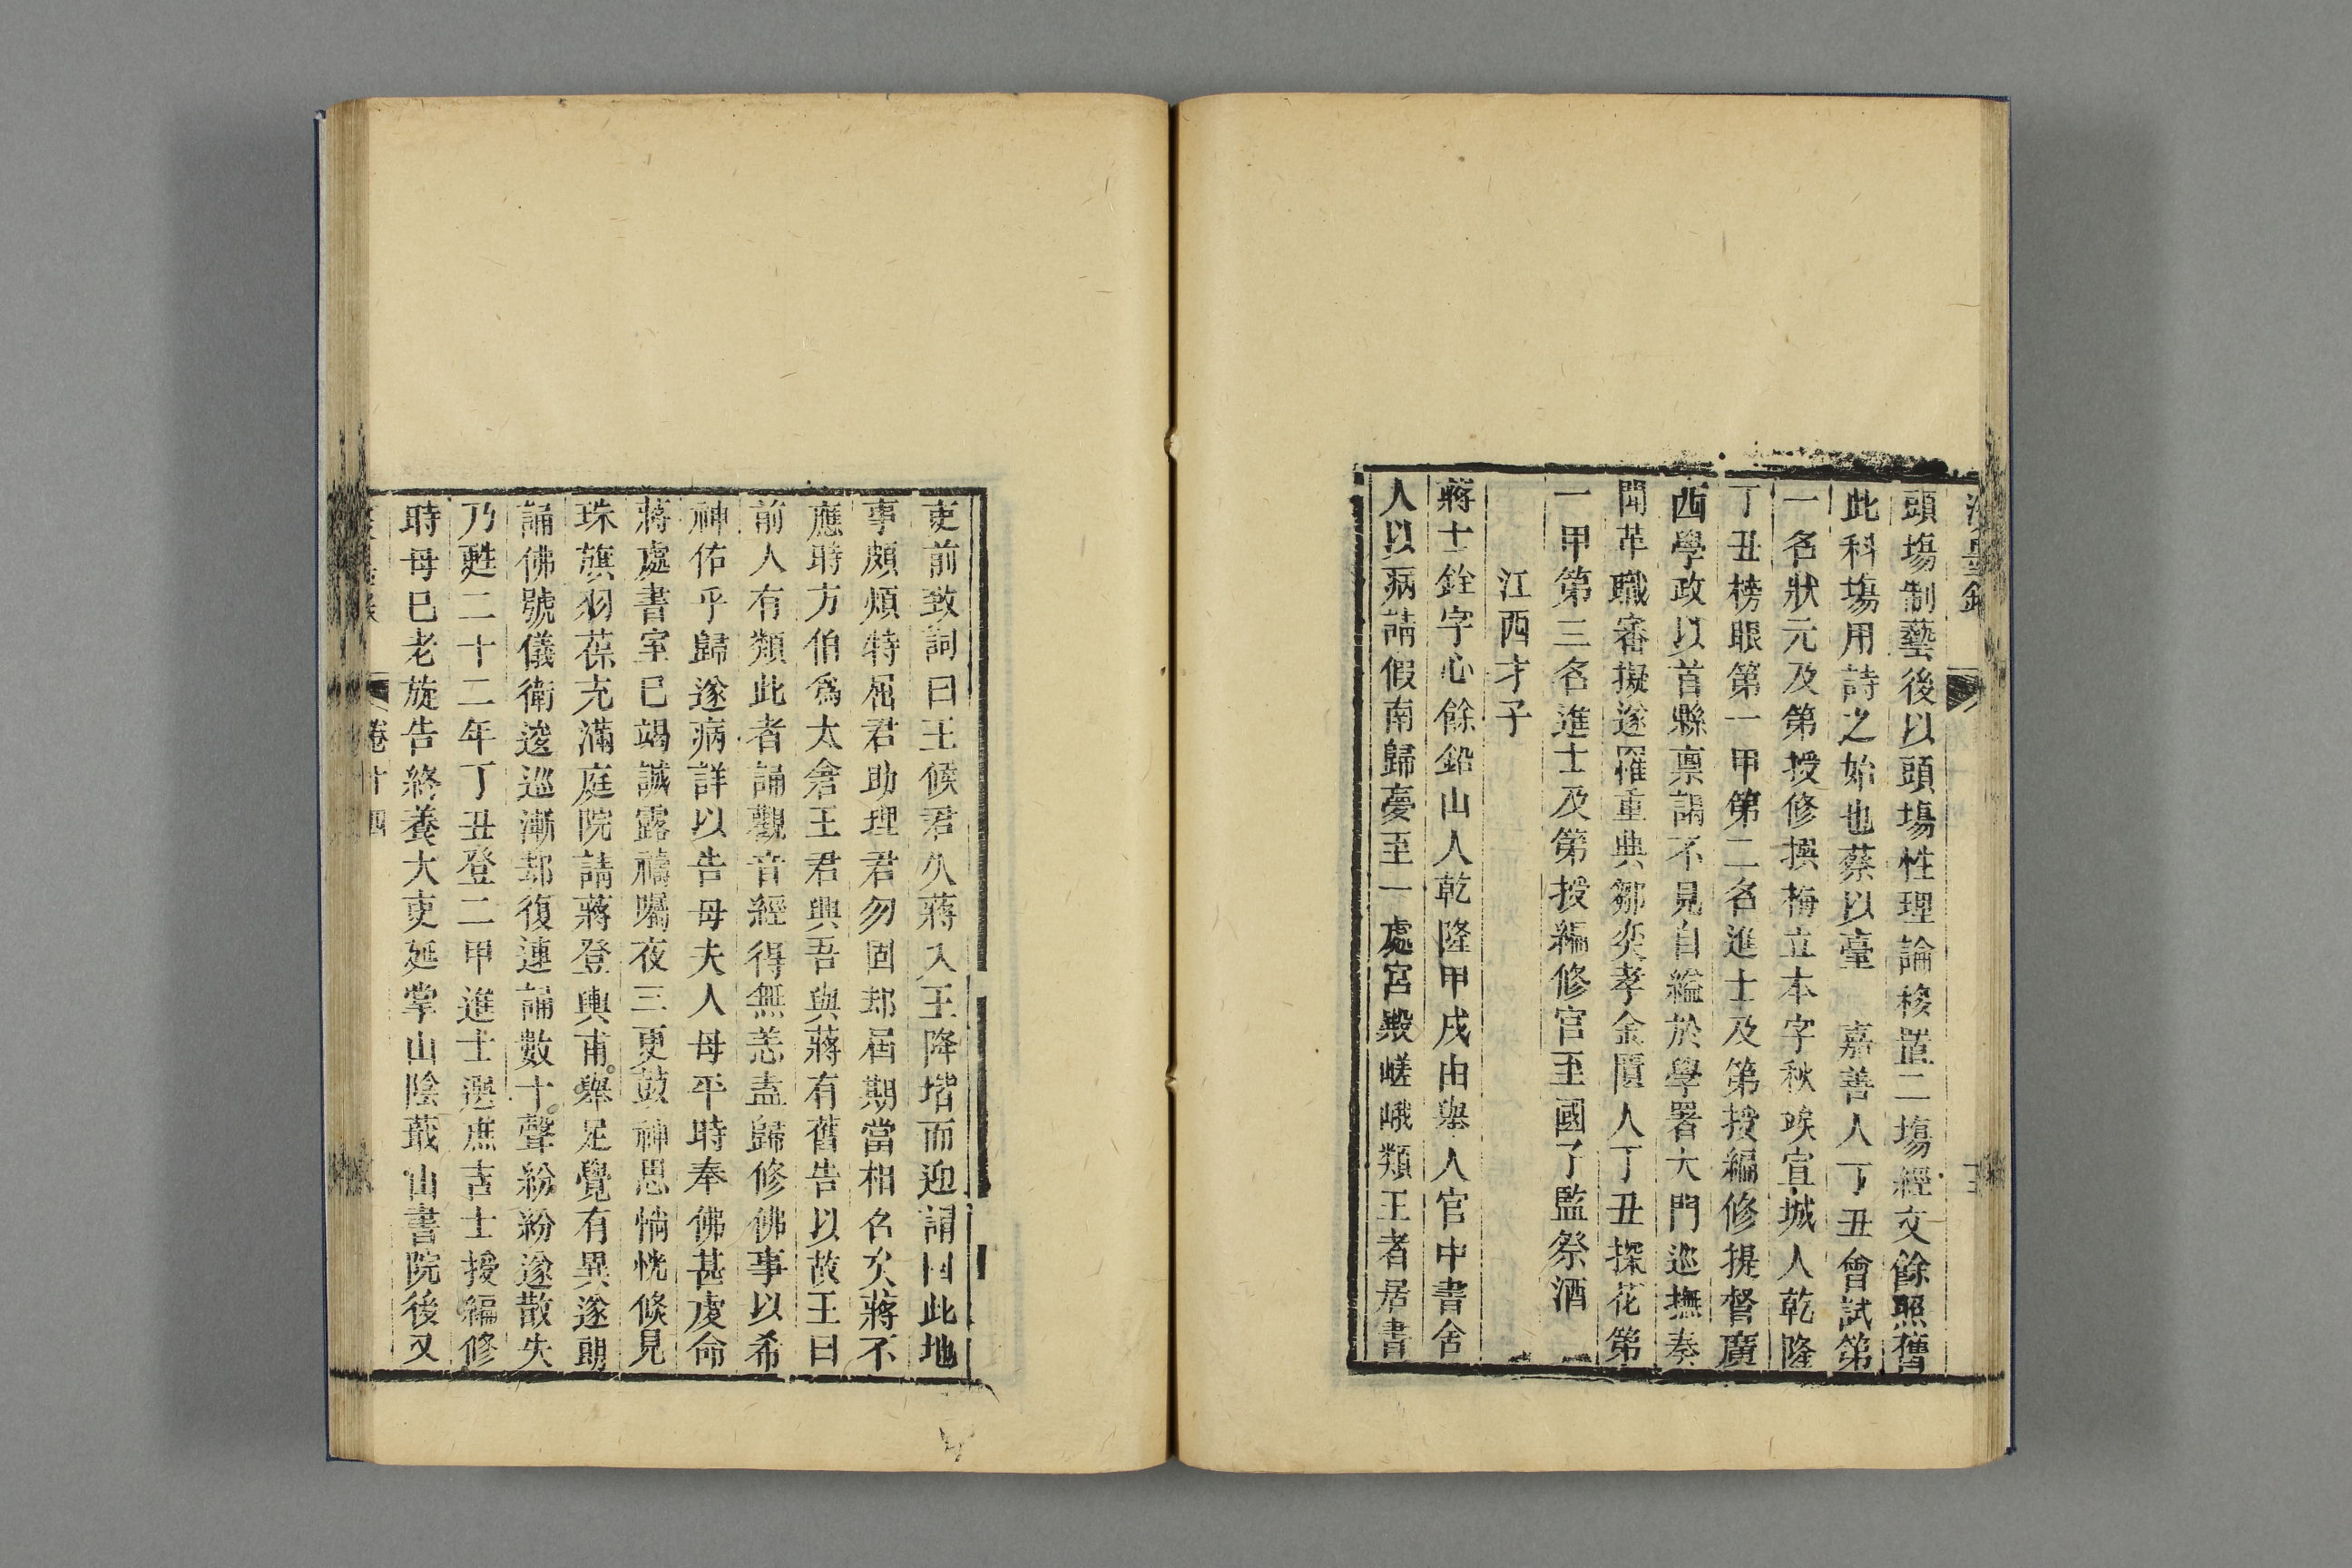 頭塲制藝後以頭塲性理論移置二塲經文餘照舊
此科塲用詩之始也蔡以臺　嘉善人丁丑會試第
一名狀元及第授修撰梅立本字秋竢宣城人乾隆
丁丑榜眼第一甲第二名進士及第授編修提督廣
西學政以首縣禀請不見自縊於學署大門巡撫奏
聞革職審擬遂罹重典鄒奕孝金匱人丁丑探花第
一甲第三名進士及第授編修官至國子監祭酒
江西才子
蔣士銓字心餘鉛山人乾隆甲戌由舉人官中書舍
人以病請假南歸夢至一處宮殿嵯峨類王者居書
吏前致詞曰王候君久蔣入王降堦而迎謂曰此地
事頗煩特屈君助理君勿固却屆期當相名欠蔣不
應時方伯爲太倉王君興吾與蔣有舊告以故王曰
前人有類此者誦觀音經得無恙盍歸修佛事以希
神佑乎歸遂病詳以告母夫人母平時奉佛甚虔命
蔣處書室已竭誠露禱矚夜三更鼓神思惝恍倐見
珠旗羽葆充滿庭院請蔣登輿甫舉足覺有異遂朗
誦佛號儀衛逡巡漸却復連誦數十聲紛紛遂散失
乃甦二十二年丁丑登二甲進士選庶吉士授編修
時母已老旋告終養大吏延掌山陰蕺山書院後又
卷十四